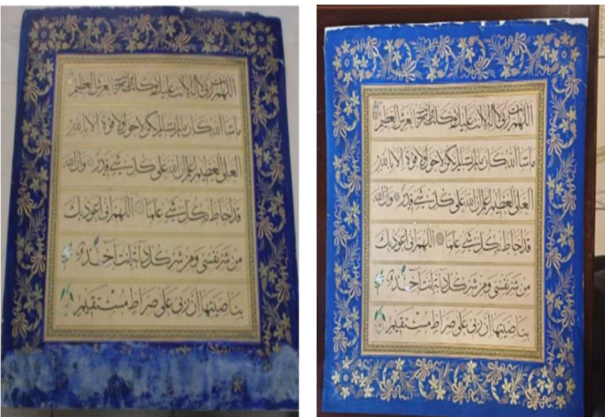 اللهم انت ربي لا اله الا انت عليك توكلت وانت رب العرش العظيم
ما شاء الله كان وما لم يشأ لم يكن ولا حول ولا قوة الا بالله
العلي العظيم اعلم ان الله على كل شيء قدير وان الله
قد احاط بكل شيء علما اللهم اني اعوذ بك
من شر نفسي ومن شر كل دابة انت آخذ
بناصيتها ان ربي على صراط مستقيم
اللهم انت ربي لا اله الا انت عليك توكلت وانت رب العرش العظيم
ما شاء الله كان وما لم يشأ لم يكن ولا حول ولا قوة الا بالله
العلي العظيم اعلم ان الله على كل شيء قدير وان الله
قد احاط بكل شيء علما اللهم اني اعوذ بك
من شر نفسي ومن شر كل دابة انت آخذ
بناصيتها ان ربي على صراط مستقيم